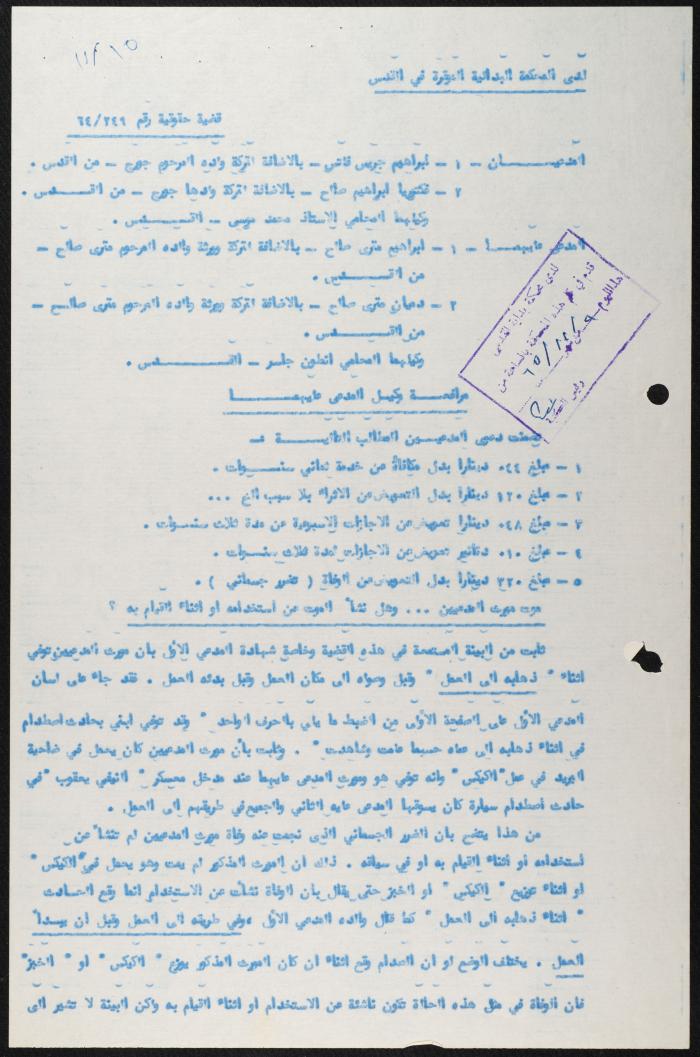 ١١/١٥
لدى المحكمة البدائية الموقرة في القدس
قضية حقوقية رقم ٦٤/٢٤٩
المدعيـــــان - ١ - ابراهيم جريس - بالاضافة لتركة ولده المرحوم جورج - من القدس .
٢ - ابراهيم صالح - بالاضافة لتركة ولدها جورج - من القـــدس .
وكيلهما المحامي الاستاذ محمد موسى - القـــدس .
المدعى عليهمـــا - ١ - ابراهيم متري صالح - بالاضافة لتركة وورثة والده المرحوم متري صالح -
من القـــدس .
٢ - متري صالح - بالاضافة لتركة وورثة والده المرحوم متري صالح -
من القـــدس .
وكيلهما المحامي انطون - القـــدس .
لدى محكمة بداية القدس
قدم في قلم هذه المحكمة بالساعة من
هذا اليوم ٩ من شهر ١٢ / ٦٥
رئيس
مرافعـــة وكيـل المدعى عليهمـــا
تضمنت دعوى المدعيـين المطالب التاليـــة :-
١ - مبلغ ٠٤٤ دينارا بدل مكافأة عن خدمة ثماني سنـــوات .
٢ - مبلغ ١٢٠ دينارا بدل التعويض عن الاثراء بلا سبب الخ ...
٣ - مبلغ ٠٤٨ دينارا تعويض عن الاجازات الاسبوعية عن مدة ثلاث سنـــوات .
٤ - مبلغ ٠١٠ دنانير تعويض عن الاجازات لمدة ثلاث سنـــوات .
٥ - مبلغ ٣٢٠ دينارا بدل التعويض عن الوفاة ( ضرر جسماني ) .
موت مورث المدعيين ... وهل نشأ الموت عن استخدامه او اثناء القيام به ؟
ثابت من البينة المستمعة في هذه القضية وخاصة شهادة المدعي الاول بان مورث المدعيين توفي
اثناء " ذهابه الى العمل " وقبل وصوله الى مكان العمل وقبل بدئه العمل . فقد جاء على لسان
المدعي الاول على الصفحة الاولى من الضبط ما يلي بالحرف الواحد " وقد توفي ابني بحادث اصطدام
في اثناء ذهابه الى عمله حسبما علمت وشاهدت " . وثابت بأن مورث المدعيين كان يعمل في ضاحية
البريد في عمل " الكيكس " وانه توفي هو ومورث المدعى عليهما عند مدخل معسكر " النبي يعقوب " في
حادث اصطدام سيارة كان يسوقها المدعى عليه الثاني والجميع في طريقهم الى العمل .
من هذا يتضح بان الضرر الجسماني الذي نجمت عنه وفاة مورث المدعيين لم تنشأ عن
استخدامه او اثناء القيام به او في سياقه . ذلك ان المورث المذكور لم يمت وهو يعمل في " الكيكس "
او اثناء توزيع " الكيكس " او الخبز حتى يقال بان الوفاة نشأت عن الاستخدام انما وقع الحـادث
" اثناء ذهابه الى العمل " كما قال والده المدعي الاول وفي طريقه الى العمل وقبل ان يبـدأ
العمل . يختلف الوضع لو ان الصدام وقع اثناء ان كان المورث المذكور يوزع " الكيكس " او " الخبز "
فان الوفاة في مثل هذه الحالة تكون ناشئة عن الاستخدام او اثناء القيام به ولكن البينة لا تشير الى